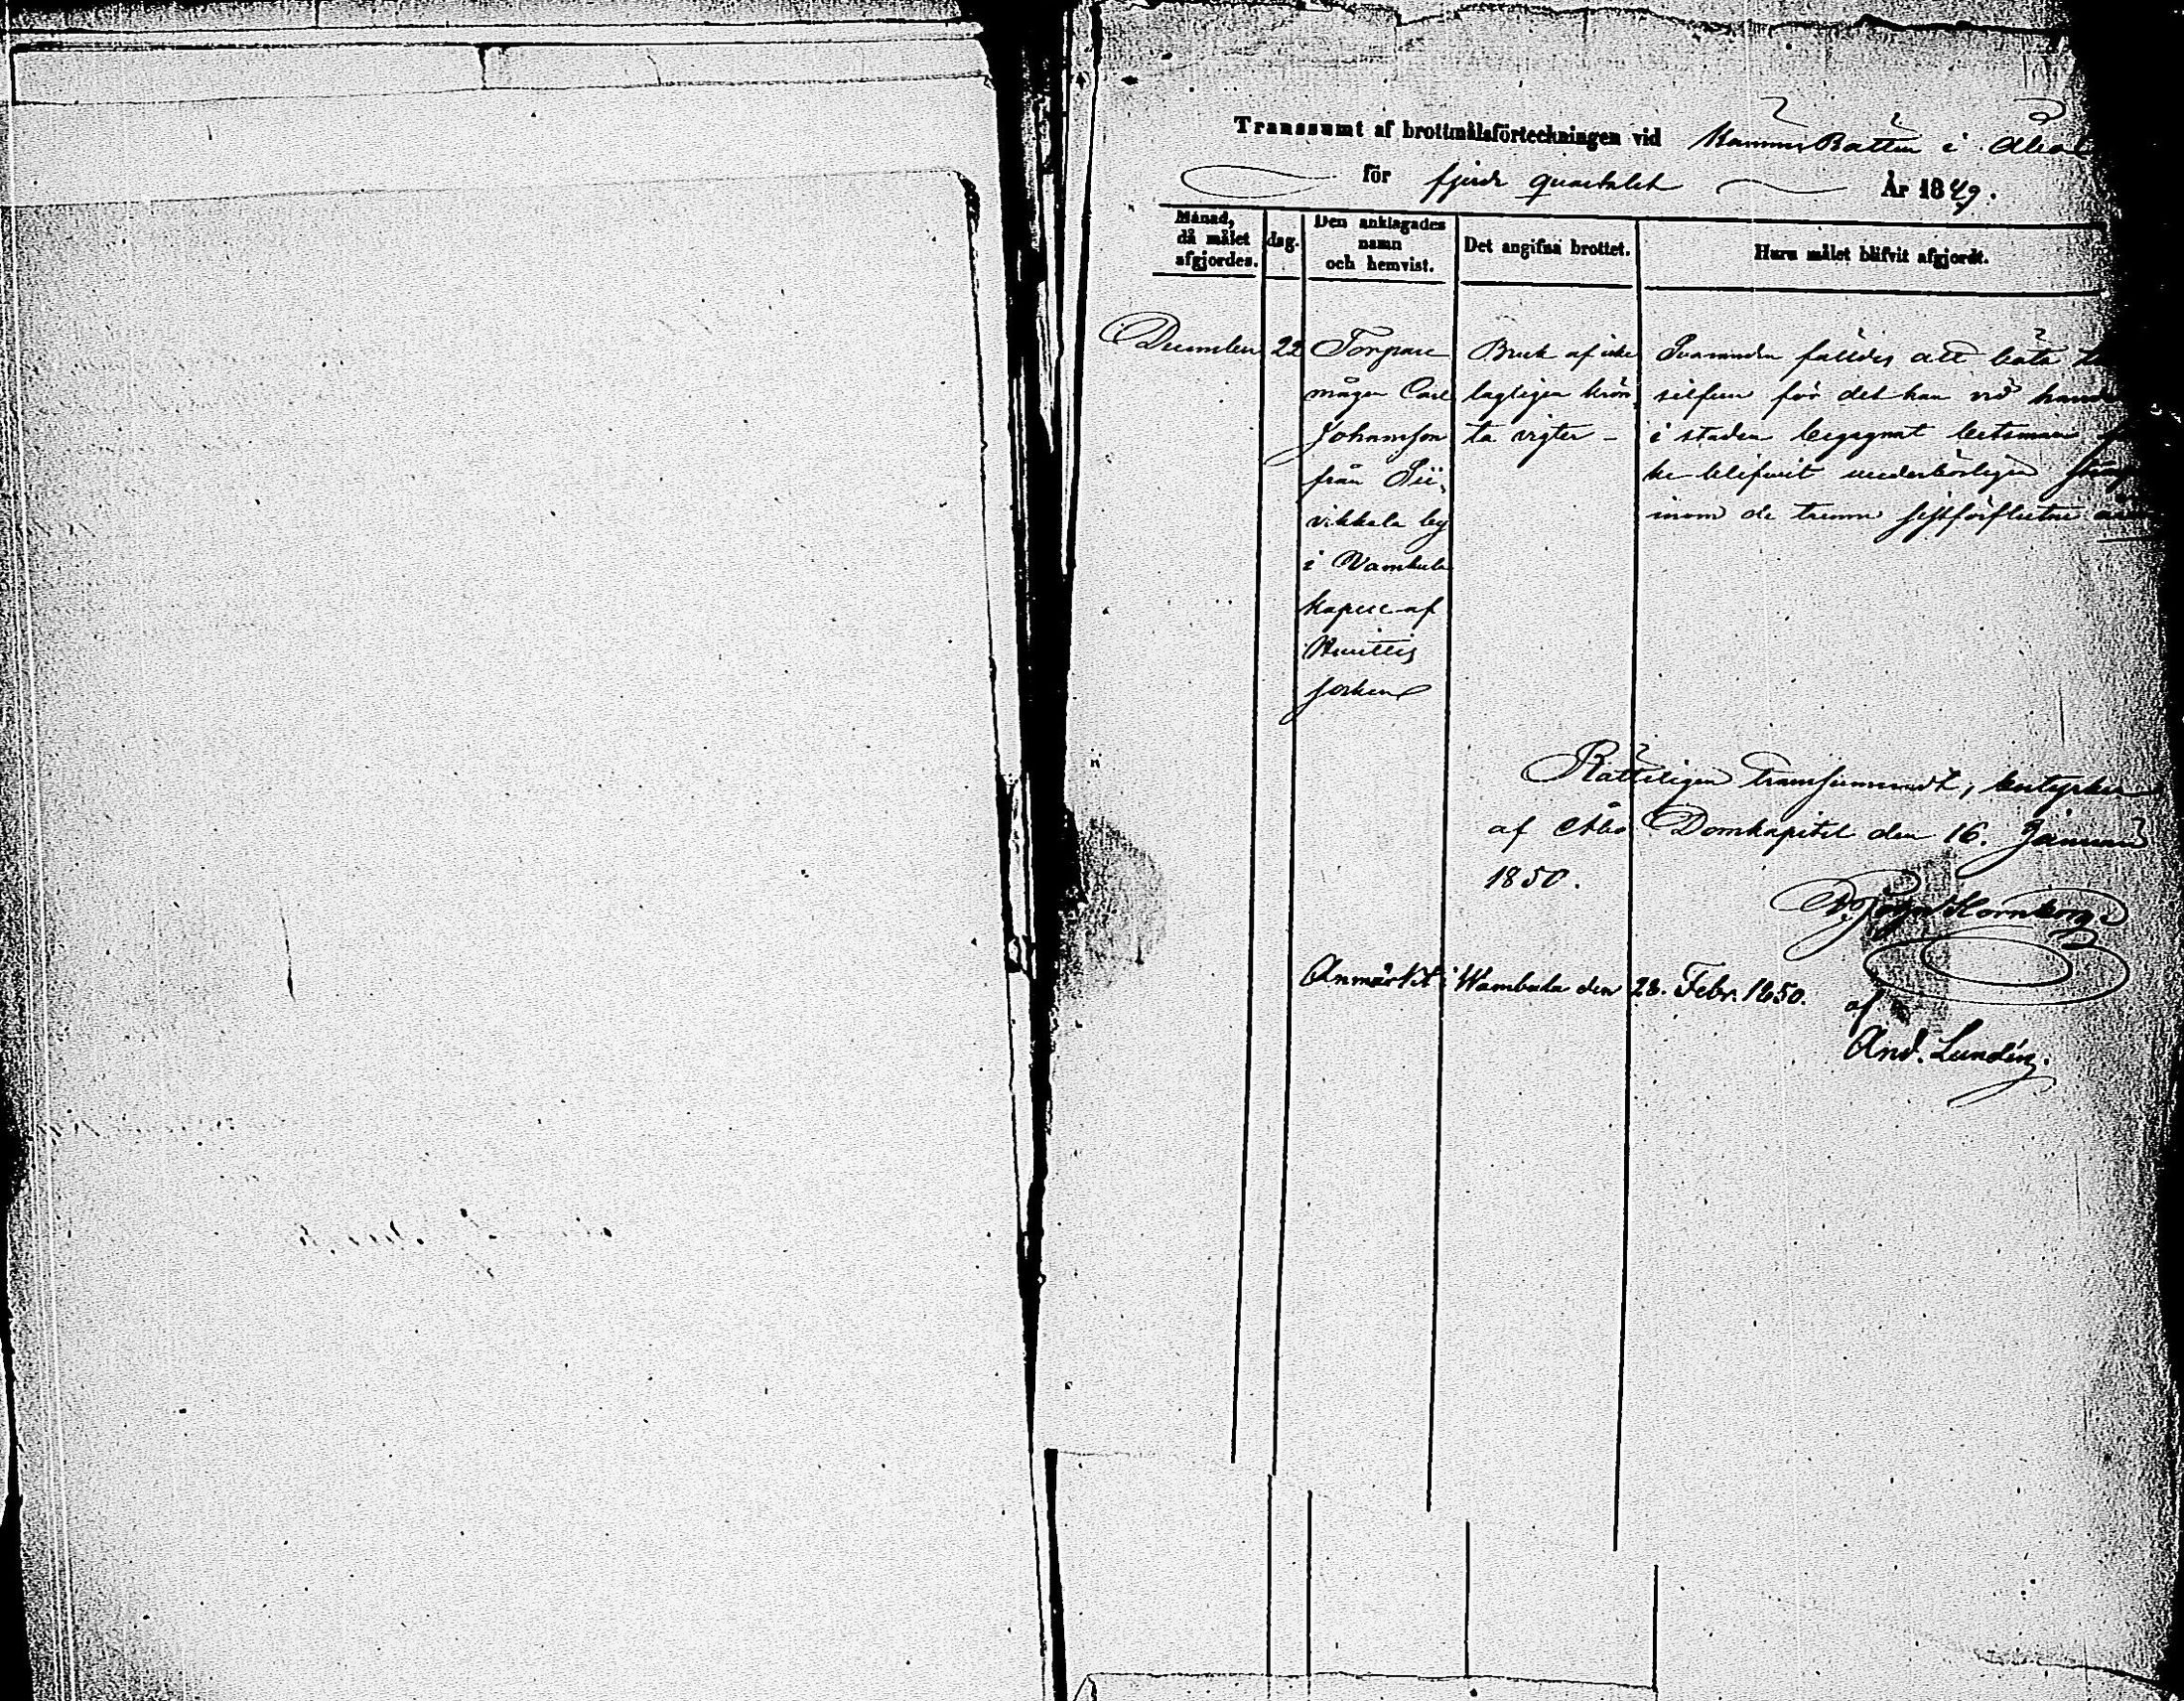 Transsumt af brottmålsförteckningen vid Kämners Rätten i Åbo
för fjerde quartalet År 1849.
Månad, då målet afgjordes.
dag.
Den anklagades namn och hemvist.
Det angifna brottet.
Huru målet blifvit afgjordt.
December 22
Torpare
mågen Carl
Johansson
från Pii,
vikkala by
i Wambula
kapell af
Huittis
socken
Bruk af icke
lagligen krön,
ta vigter -
Svaranden fälldes att böta
silfver för det han vid
i staden begagnat betsman
ke blifvit vederbörligen
inom de trenne sistförflutne
Rätteligen transsumeradt, bestyrker
af Åbo Domkapitel den 16. Januari
1850.
Anmärkt i Wambula den 28. Febr. 1850.
af
And. Lundén.